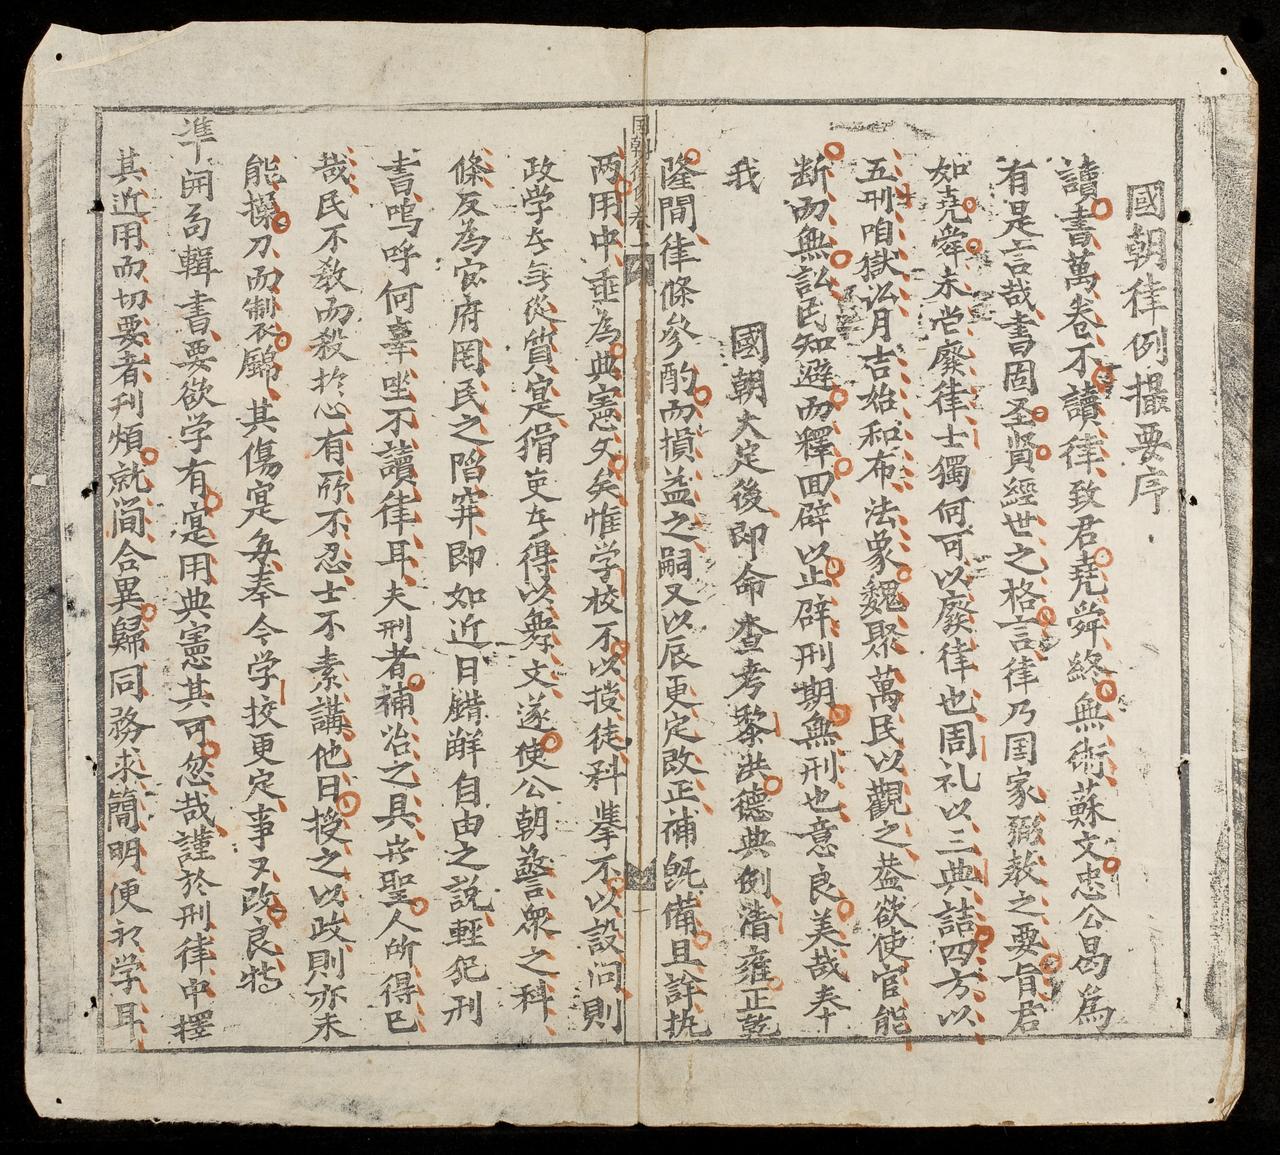 國朝律例撮要序
讀書萬卷不讀律致君堯舜終無術蘇文忠公曷為
有是言哉書固圣賢經世之格言律乃国家弼教之要旨君
如堯舜未尝廢律士獨何可以廢律也周礼以三典詰四方以
五刑咱獄訟月吉始和布法象魏聚萬民以觀之葢欲使官能
断而無訟民知避而釋囬辟以止辟刑期無刑也意良美哉奉
我
國朝大定後即命查考黎洪德典例清雍正乾
隆間律條參酌而損益之嗣又以辰更定改正補既備且詳执
两用中垂為典憲久矣惟学校不以授徒科舉不以設问則
政学士無從質寔猾吏士得以舞文遂使公朝警衆之科
條反為官府罔民之陷穽即如近日錯觧自由之說輕犯刑
書嗚呼何辜坐不讀律耳夫刑者補治之具非聖人所得已
哉民不教而殺扵心有所不忍士不素講他日授之以政則亦未
能操刀而製衣錦其傷寔多奉今学校更定事又改良特
準開局輯書要欲学有寔用典憲其可忽哉謹於刑律中擇
其近用而切要者刊煩就简合異歸同務求簡明便初学耳
国朝律例卷一